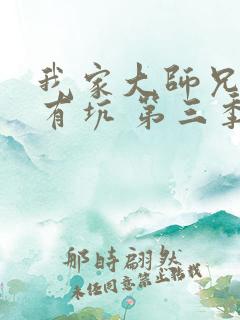 我家大师兄
有坑 第三季
那时翩然
未经同意禁止转载